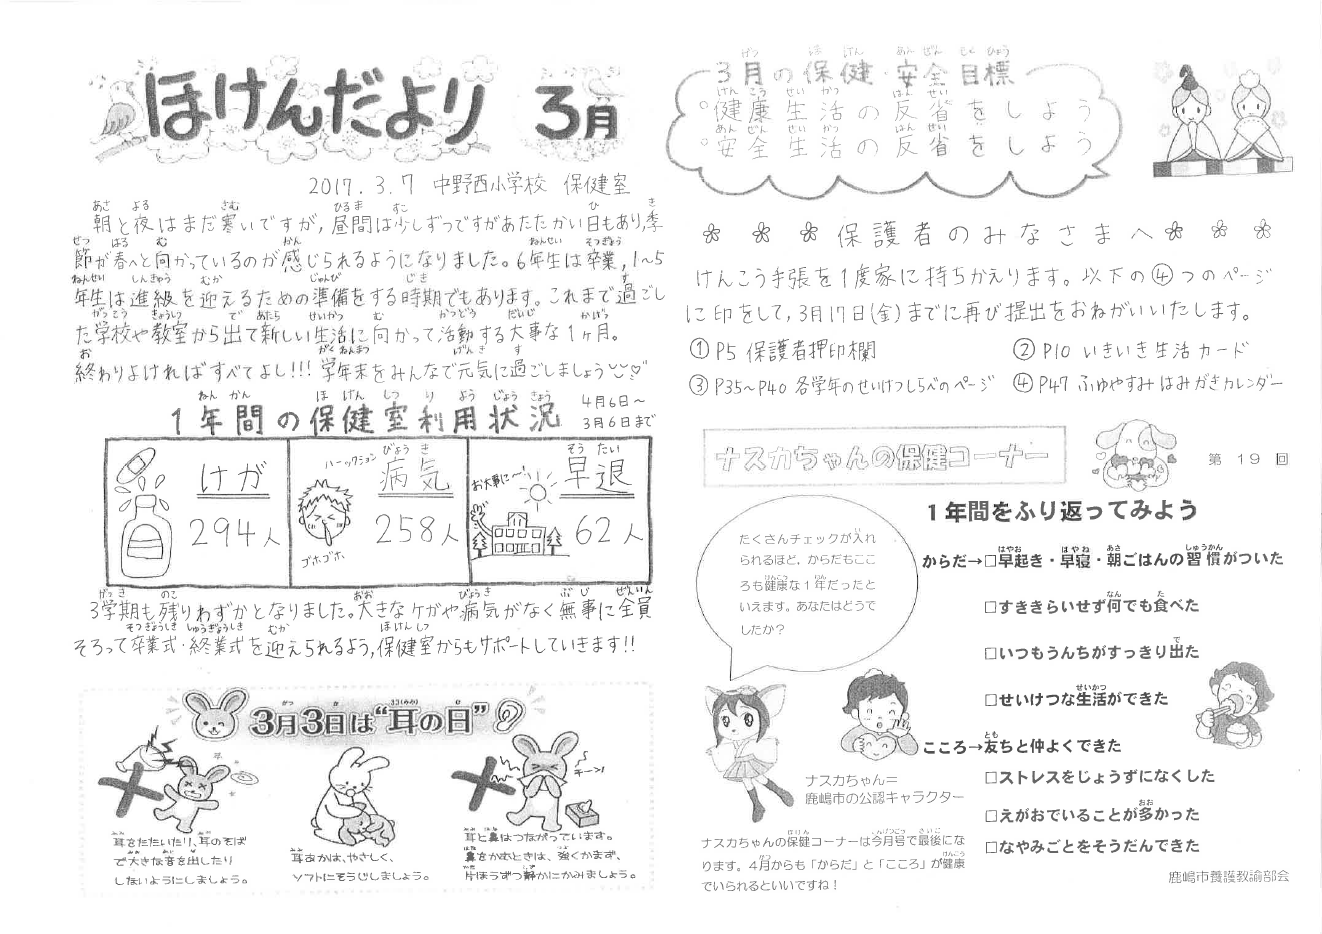 ほけんだより 3月
2017.3.7 中野西小学校 保健室
朝と夜はまだ寒いですが,昼間は少しずつですがあたたかい日もあり,季
節が春へと向かっているのが感じられるようになりました。6年生は卒業,1~5
年生は進級を迎えるための準備をする時期でもあります。これまで過ごし
た学校や教室から出て新しい生活に向かって活動する大事な1ヶ月。
終わりよければすべてよし!!!学年末をみんなで元気に過ごしましょう
1年間の保健室利用状況
4月6日~
3月6日まで
けが
294人
ハーックション
病気
258人
ゴホ,ゴホ
お大事に~!
早退
62人
3学期も残りわずかとなりました。大きなケガや病気がなく無事に全員
そろって卒業式・終業式を迎えられるよう,保健室からもサポートしていきます!!
3月3日は“耳の日”
耳をたたいたり、耳のそば
で大きな音を出したり
しないようにしましょう。
耳あかは、やさしく、
ソフトにそうじしましょう。
キーン!
耳と鼻はつながっています。
鼻をかむときは、強くかまず、
片ほうずつ静かにかみましょう。
3月の保健・安全目標
。健康生活の反省をしよう
。安全生活の反省をしよう
保護者のみなさまへ
けんこう手張を1度家に持ちかえります。以下の④つのページ
に印をして,3月17日(金)までに再び提出をおねがいいたします。
① P5 保護者押印欄
② P10 いきいき生活カード
③ P35~P40 各学年のせいけつしらべのページ
④ P47 ふゆやすみはみがきカレンダー
ナスカちゃんの保健コーナー
第 19 回
1年間をふり返ってみよう
たくさんチェックが入れ
られるほど、からだもここ
ろも健康な1年だったと
いえます。あなたはどうで
したか?
からだ→□早起き・早寝・朝ごはんの習慣がついた
□すききらいせず何でも食べた
□いつもうんちがすっきり出た
□せいけつな生活ができた
こころ→友ちと仲よくできた
□ストレスをじょうずになくした
□えがおでいることが多かった
□なやみごとをそうだんできた
ナスカちゃん=
鹿嶋市の公認キャラクター
ナスカちゃんの保健コーナーは今月号で最後にな
ります。4月からも「からだ」と「こころ」が健康
でいられるといいですね!
鹿嶋市養護教諭部会